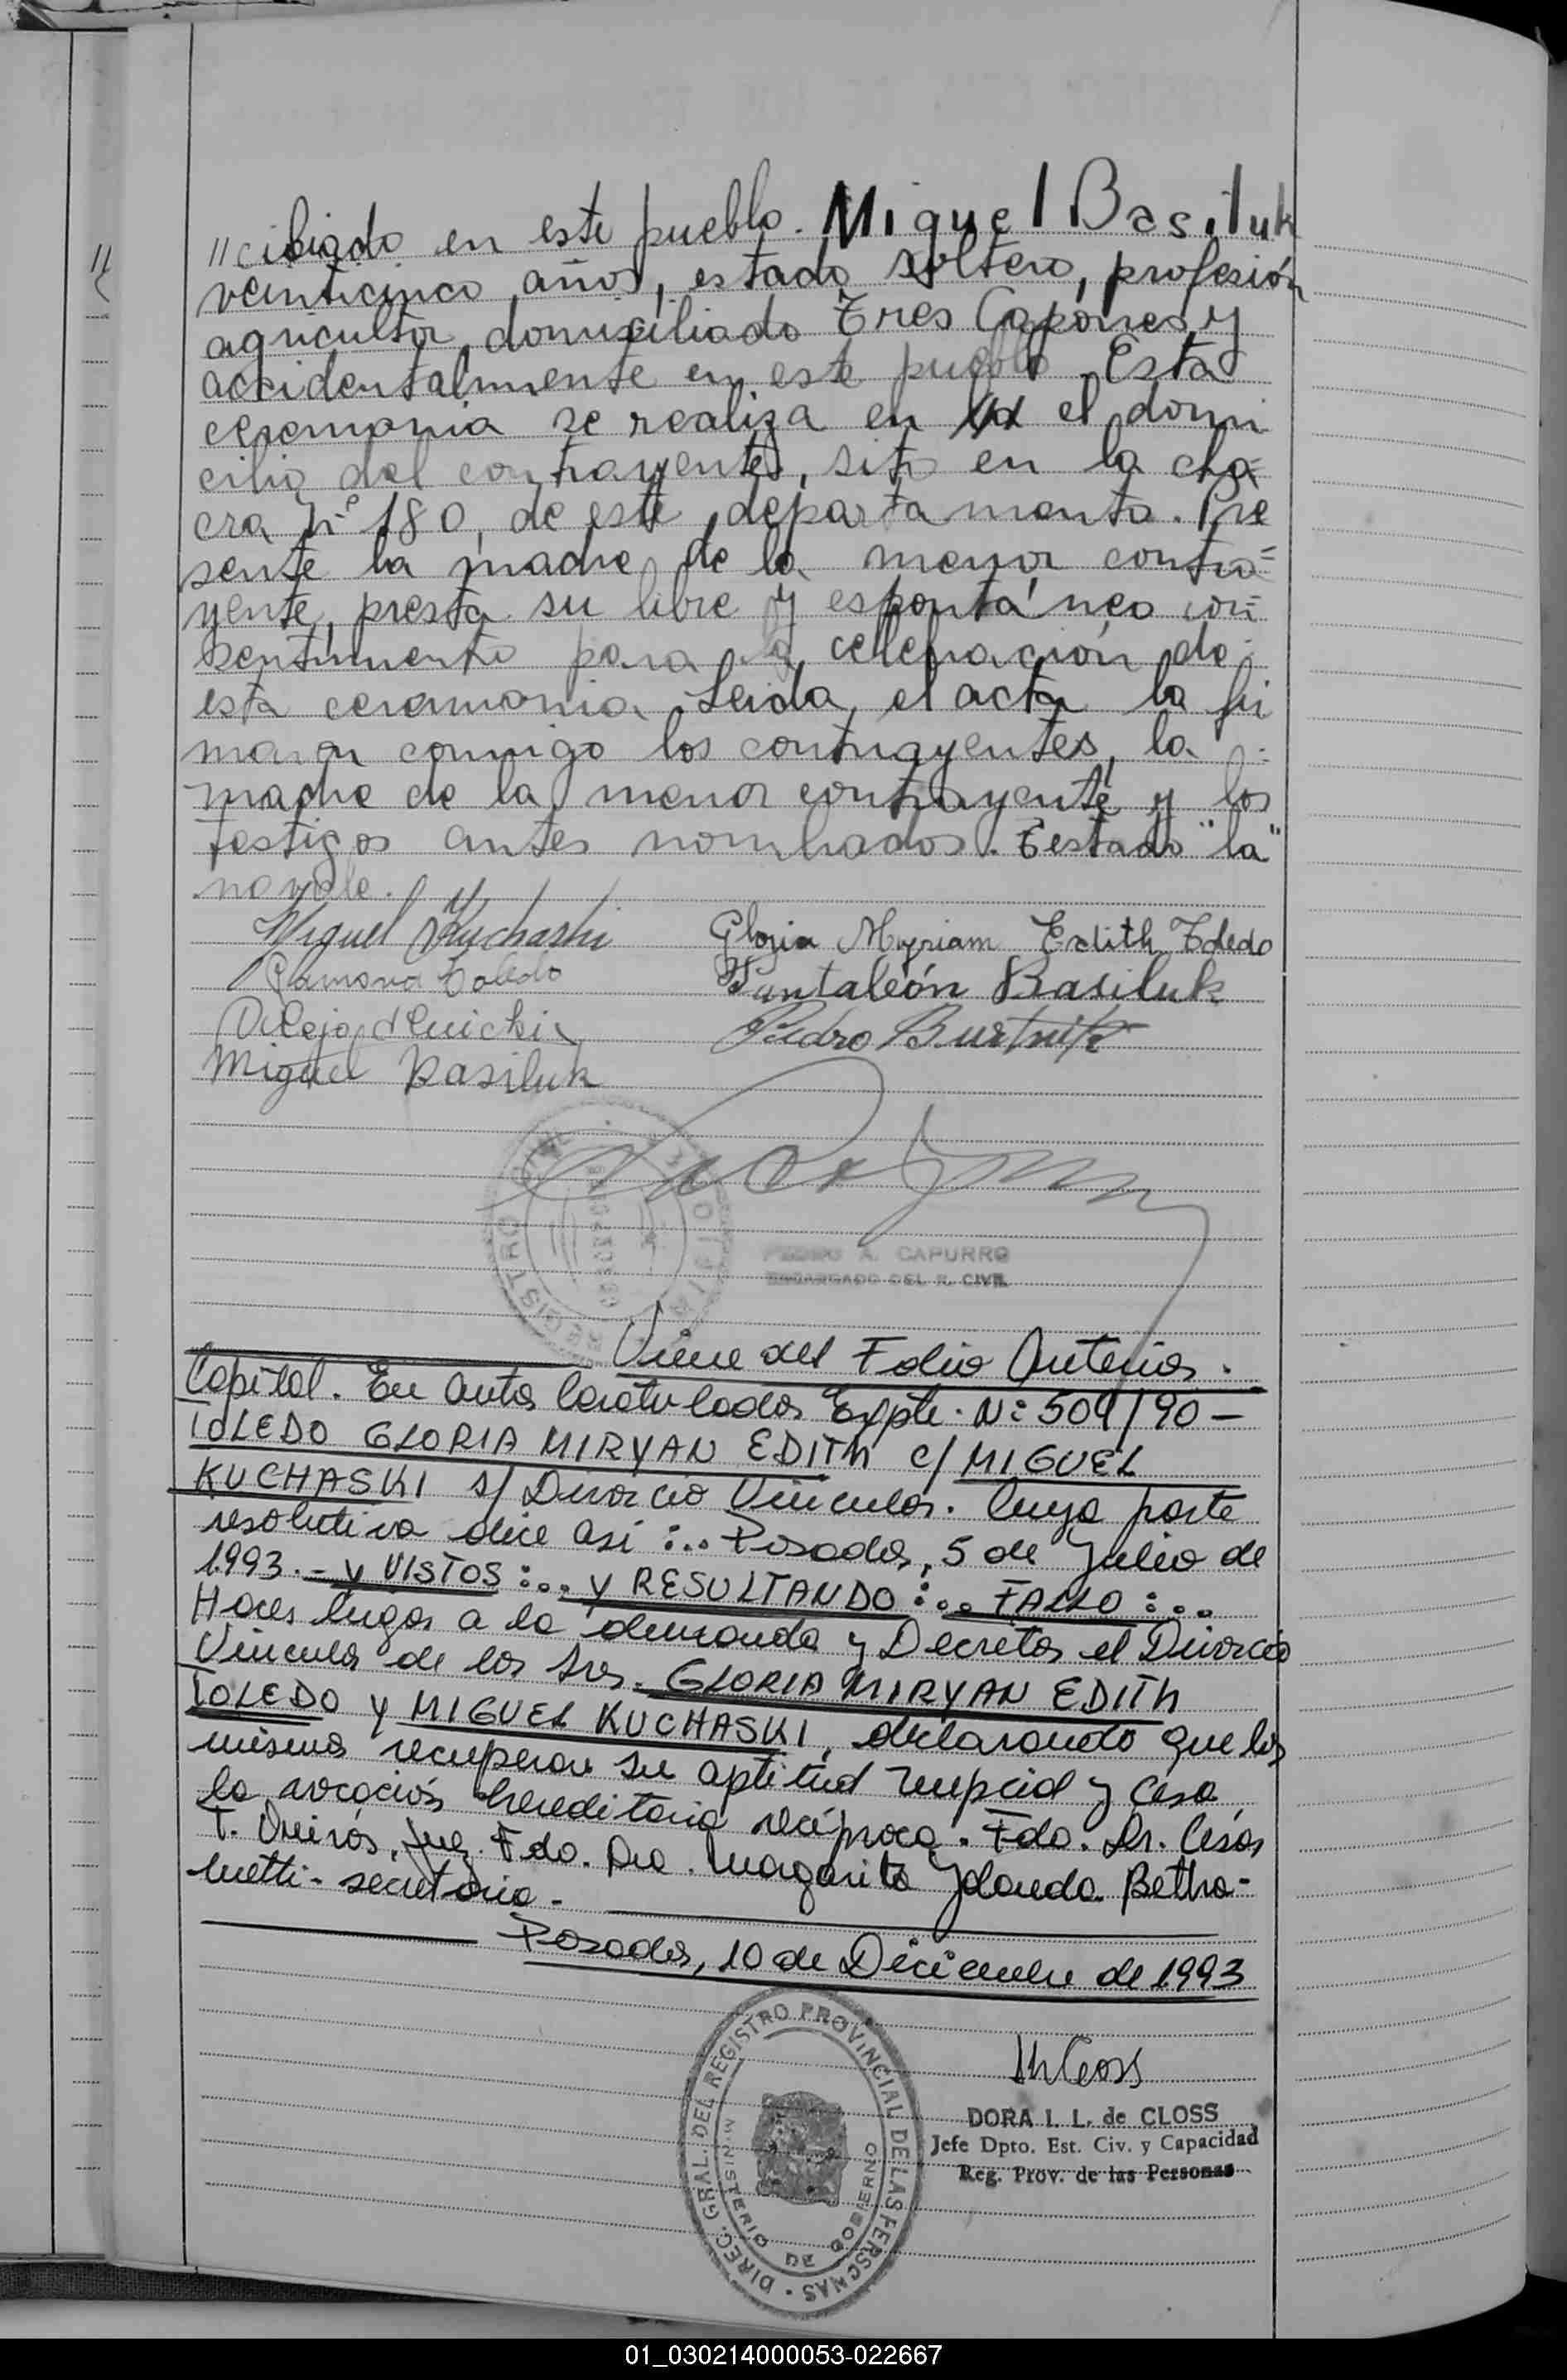 //ciliado en este pueblo. Miguel Basiluk
veinticinco años, estado soltero, profesión
agricultor, domiciliado Tres Capones y
accidentalmente en este pueblo. Esta
ceremonia se realiza en la el domi
cilio del contrayente, sito en la cha=
cra Nº 180, de este departamento. Pre
sente la madre de la menor contra=
yente, presta su libre y espontáneo con=
sentimiento para la celebración de
esta ceremonia. Leida el acta la fir
maron conmigo los contrayentes, la
madre de la menor contrayente y los
testigos antes nombrados. Testado "la"
no vale.
Miguel Kuchaski Gloria Myriam Edith Toledo
Ramona Toledo Pantaleón Basiluk
Pedro Burtnik
Miguel Basiluk
PEDRO A. CAPURRO
ENCARGADO DEL R. CIVIL
REGISTRO
Viene del Folio Anterior.
Capital. En autos Caratulados Expte. Nº 509/90 -
TOLEDO GLORIA MIRYAN EDITH c/ MIGUEL
KUCHASKI s/ Divorcio Vincular. Cuya parte
resolutiva dice así:.. Posadas, 5 de Julio de
1993.- y VISTOS:... y RESULTANDO:... FALLO:...
Hacer lugar a la demanda y Decretar el Divorcio
Vincular de los Sres. GLORIA MIRYAN EDITH
TOLEDO y MIGUEL KUCHASKI, declarando que los
mismos recuperan su aptitud nupcial y Cesa
la vocación hereditaria recíproca. Fdo. Dr. César
T. Juez. Fdo. Dra. Margarita Yolanda Betha-
metti - secretaria -
Posadas, 10 de Diciembre de 1993
DIREC. GRAL. DEL REGISTRO PROVINCIAL DE LAS PERSONAS
MINISTERIO DE GOBIERNO
DORA I. L. de CLOSS
Jefe Dpto. Est. Civ. y Capacidad
Reg. Prov. de las Personas
01_030214000053-022667